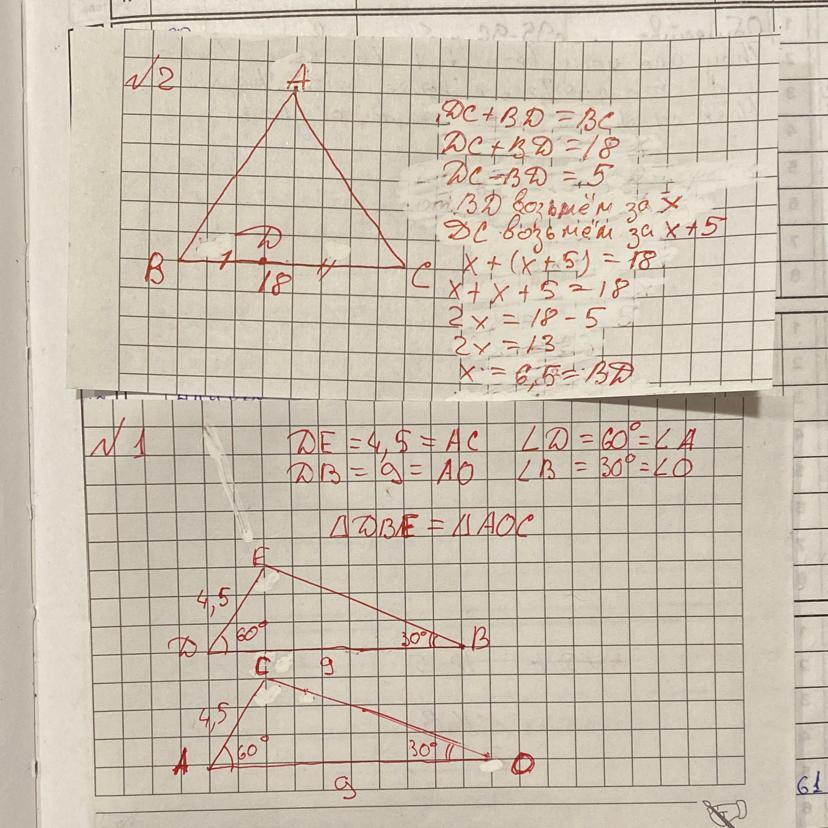 √2
A
B
D
18
C
DC + BD = BC
DC + BD = 18
DC - BD = 5
BD возьмём за x
DC возьмём за x + 5
x + (x + 5) = 18
x + x + 5 = 18
2x = 18 - 5
2x = 13
x = 6,5 = BD
√1
DE = 4,5 = AC ∠D = 60° = ∠A
DB = 9 = AO ∠B = 30° = ∠O
△DBE = △AOC
E
4,5
D 60° 30° B
9
C
4,5
A 60° 30° O
9
61